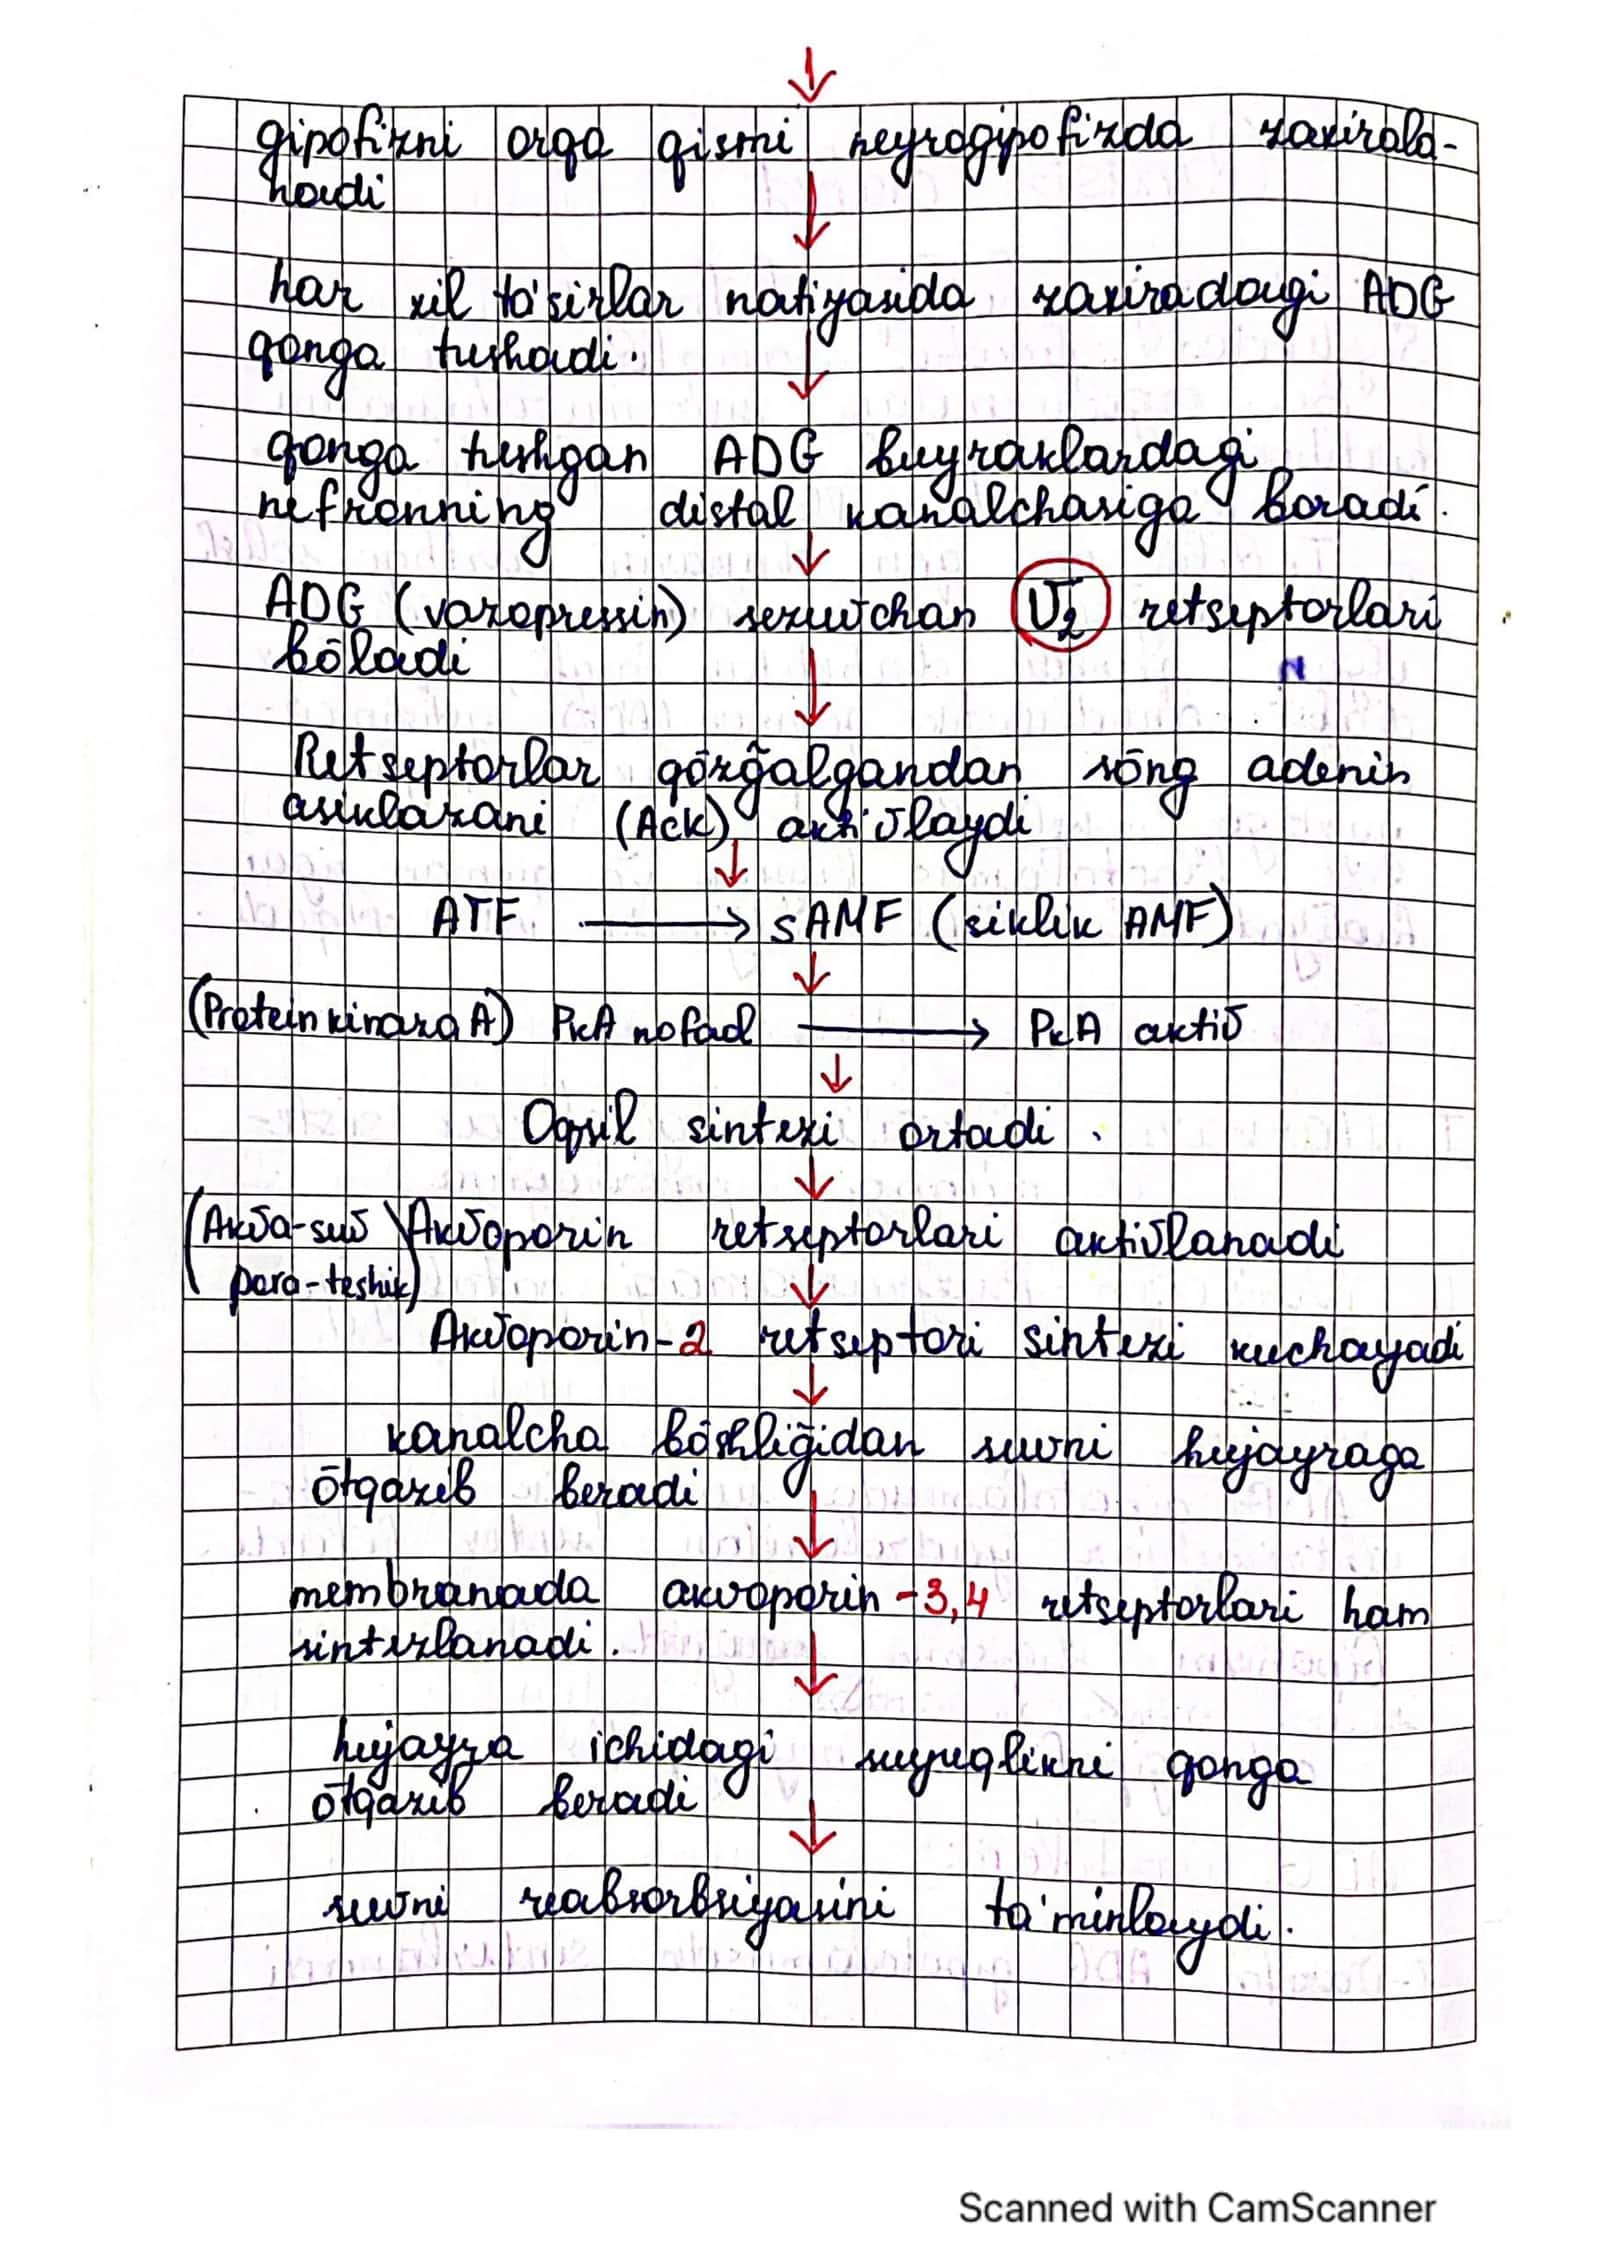 ↓
gipofizni orqa qismi neyrogipofizda zaxirala-
nadi
↓
har xil ta'sirlar natijasida zaxiradagi ADG
qonga tushadi.
↓
qonga tushgan ADG buyraklardagi
nefronning distal kanalchasiga boradi.
↓
ADG (vazopressin) sezuvchan V2 retseptorlari
bōladi
↓
Retseptorlar qōzg̃algandan sōng adenin
asiklazani (Ack) aktivlaydi
↓
ATF → sAMF (siklik AMF)
↓
(Protein kinaza A) PkA nofaol → PkA aktiv
↓
Oqsil sintezi ortadi.
↓
(Akva-suv Akvoporin retseptorlari aktivlanadi
para-teshik)
↓
Akvoporin-2 retseptori sintezi kuchayadi
↓
kanalcha bōshlig̃idan suvni hujayraga
ōtqazib beradi
↓
membranada akvoporin-3,4 retseptorlari ham
sintezlanadi.
↓
hujayra ichidagi suyuqlikni qonga
ōtqazib beradi
↓
suvni reabsorbsiyasini ta'minlaydi.
Scanned with CamScanner